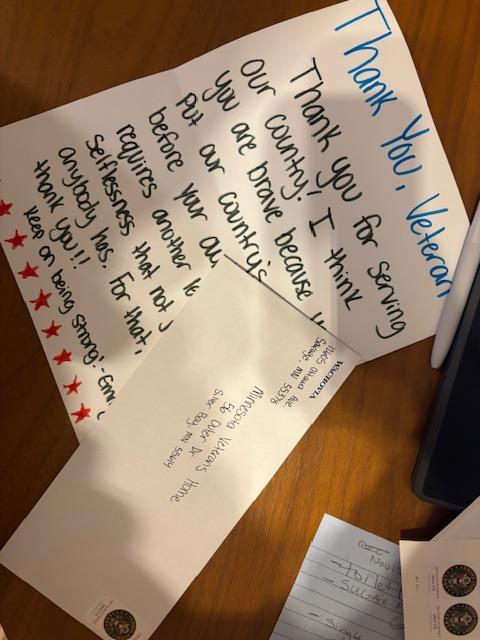 Thank You, Veteran
Thank you for serving
our country! I think
you are brave because
Put our country's
before your
requires another
selflessness that not
anybody has. For that
thank you!!
Keep on being strong! -
WACHOVIA
Ottawa Ave
Savage, MN 55378
Minnesota Veterans Home
56 Outer Dr
Silver Bay, MN 55614
toilet
- SUGAR
- Single